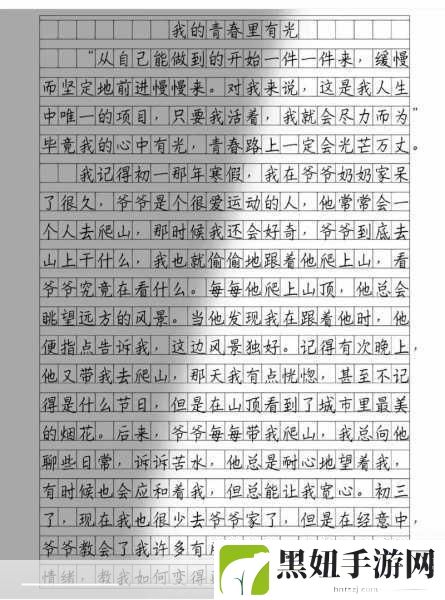 我的青春里有光
“从自己能做到的开始一件一件来，缓慢
而坚定地前进慢慢来。对我来说，这是我人生
中唯一的项目，只要我活着，我就会尽力而为”
毕竟我的心中有光，青春路上一定会光芒万丈。
我记得初一那年寒假，我在爷爷奶奶家呆
了很久，爷爷是个很爱运动的人，他常常会一
个人去爬山，那时候我还会好奇，爷爷到底去
山上干什么，我也就偷偷地跟着他爬上山，看
爷爷究竟在看什么。每每他爬上山顶，他总会
眺望远方的风景。当他发现我在跟着他时，他
便指点告诉我，这边风景独好。记得有次晚上，
他又带我去爬山，那天我有点恍惚，甚至不记
得是什么节日，但是在山顶看到了城市里最美
的烟花。后来，爷爷每每带我爬山，我总向他
聊些日常，诉诉苦水，他总是耐心地望着我，
有时候也会应和着我，但总能让我宽心。初三
了，现在我也很少去爷爷家了，但是在经意中，
爷爷教会了我许多有
情绪，教我如何变得
黑妞手游网